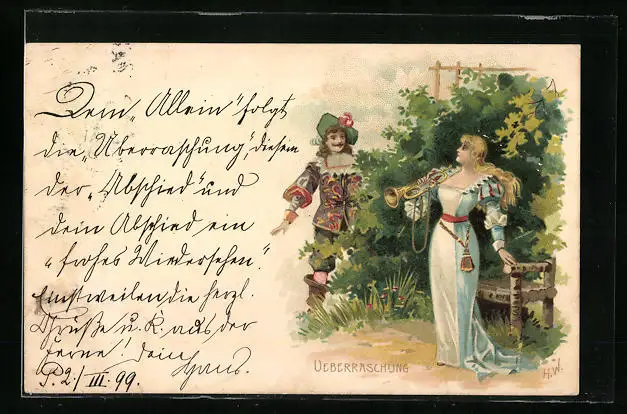 Dem „Allein" folgt
die „Überraschung", diesem
der „Abschied" und
dem Abschied ein
„frohes Wiedersehen".
Einstweilen die herzl.
Grüße u. K. aus der
Ferne! Dein Hans.
P. 2/III. 99.
UEBERRASCHUNG
H.W.